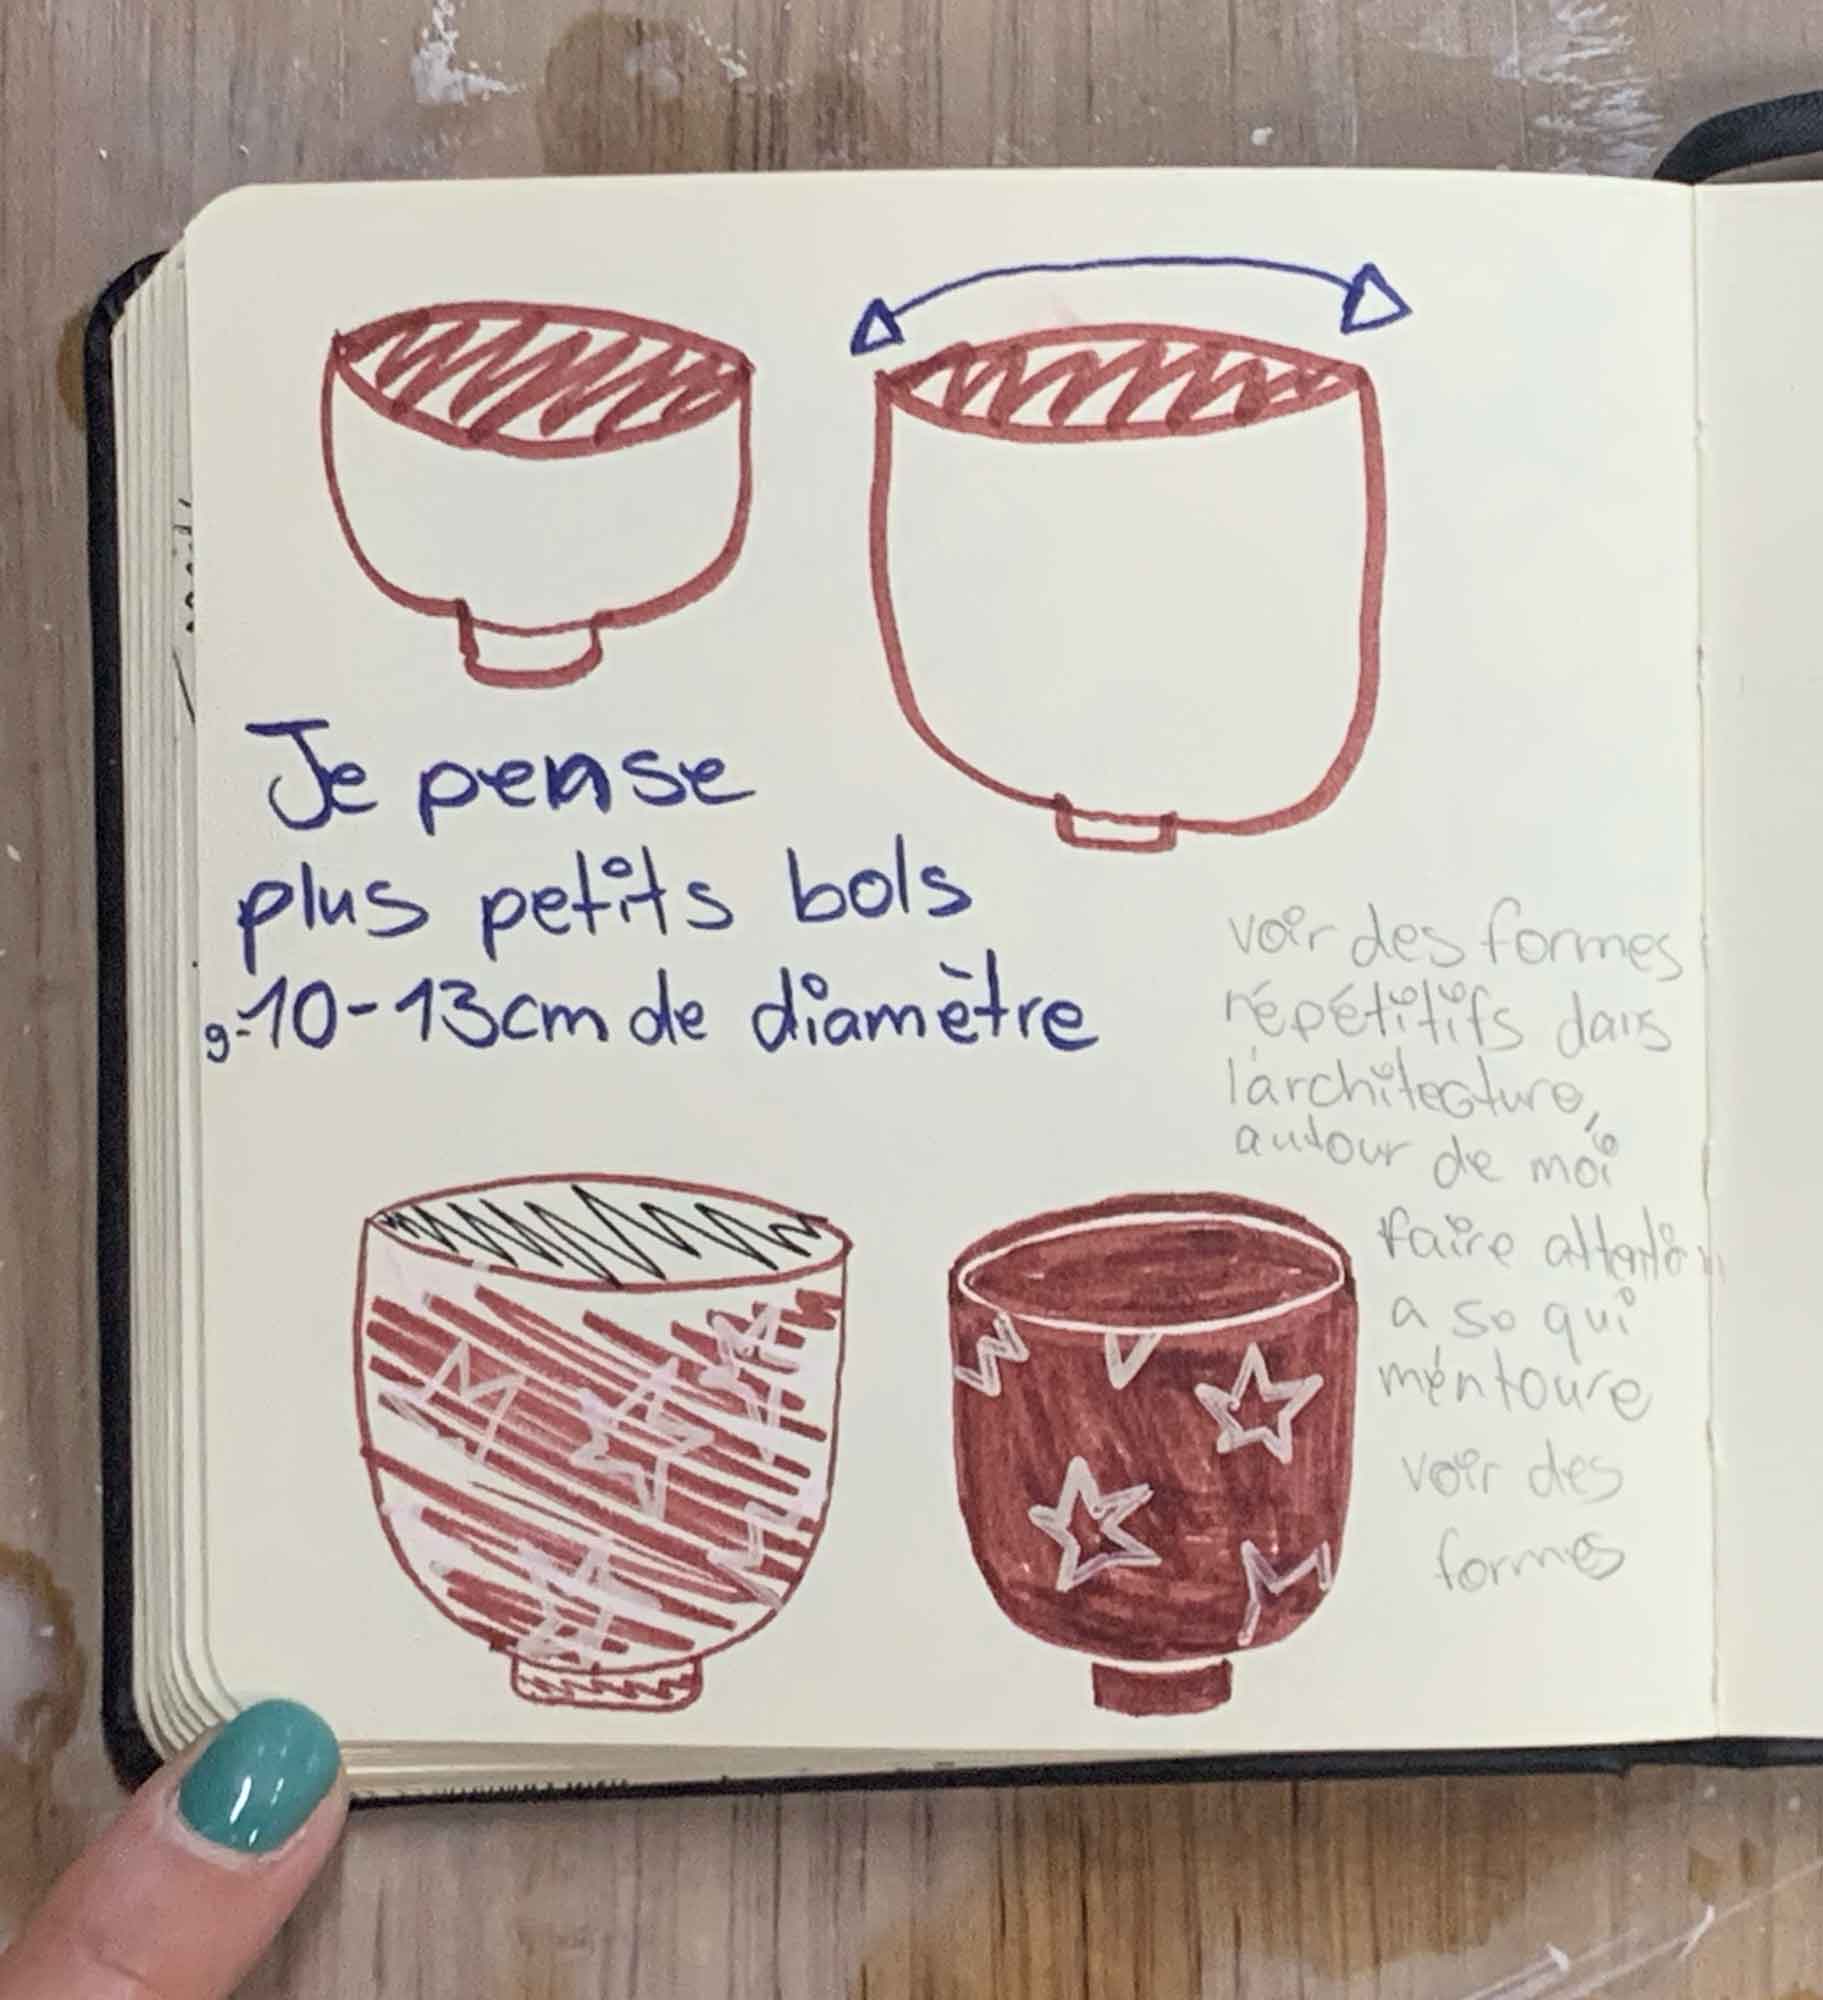 Je pense
plus petits bols
9-10-13cm de diamètre
voir des formes
répétitifs dans
l'architecture,
autour de moi
faire attention
a so qui
méntoure
voir des
formes